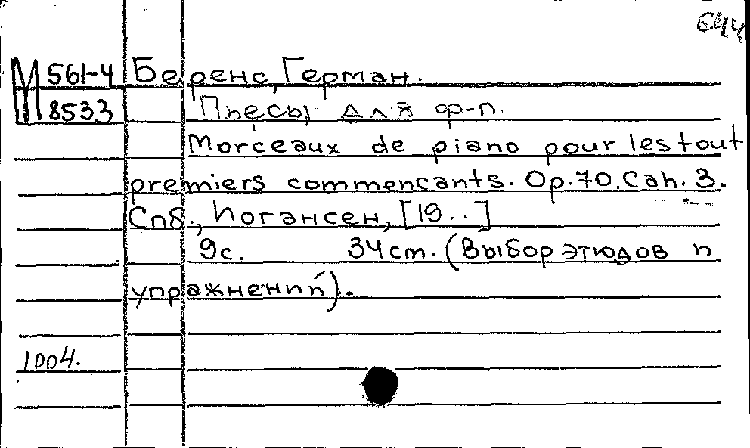 644
М 561-4 Беренс, Герман.
8533 Пьесы для ф-п.
Morceaux de piano pour les tout
premiers commencants. Op.70. Cah. 3.
Спб., Иогансен, [19..]
9с. 34см. (Выбор этюдов и
упражнений).
1004.